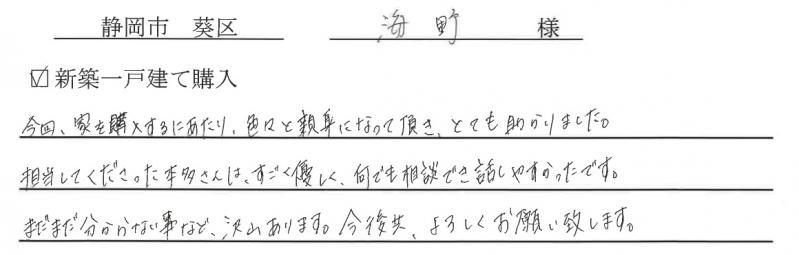 静岡市 葵区 海野 様
☑新築一戸建て購入
今回、家を購入するにあたり、色々と親身になって頂き、とても助かりました。
担当してくださった本多さんは、すごく優しく、何でも相談でき話しやすかったです。
まだまだ分からない事など、沢山あります。今後共、よろしくお願い致します。